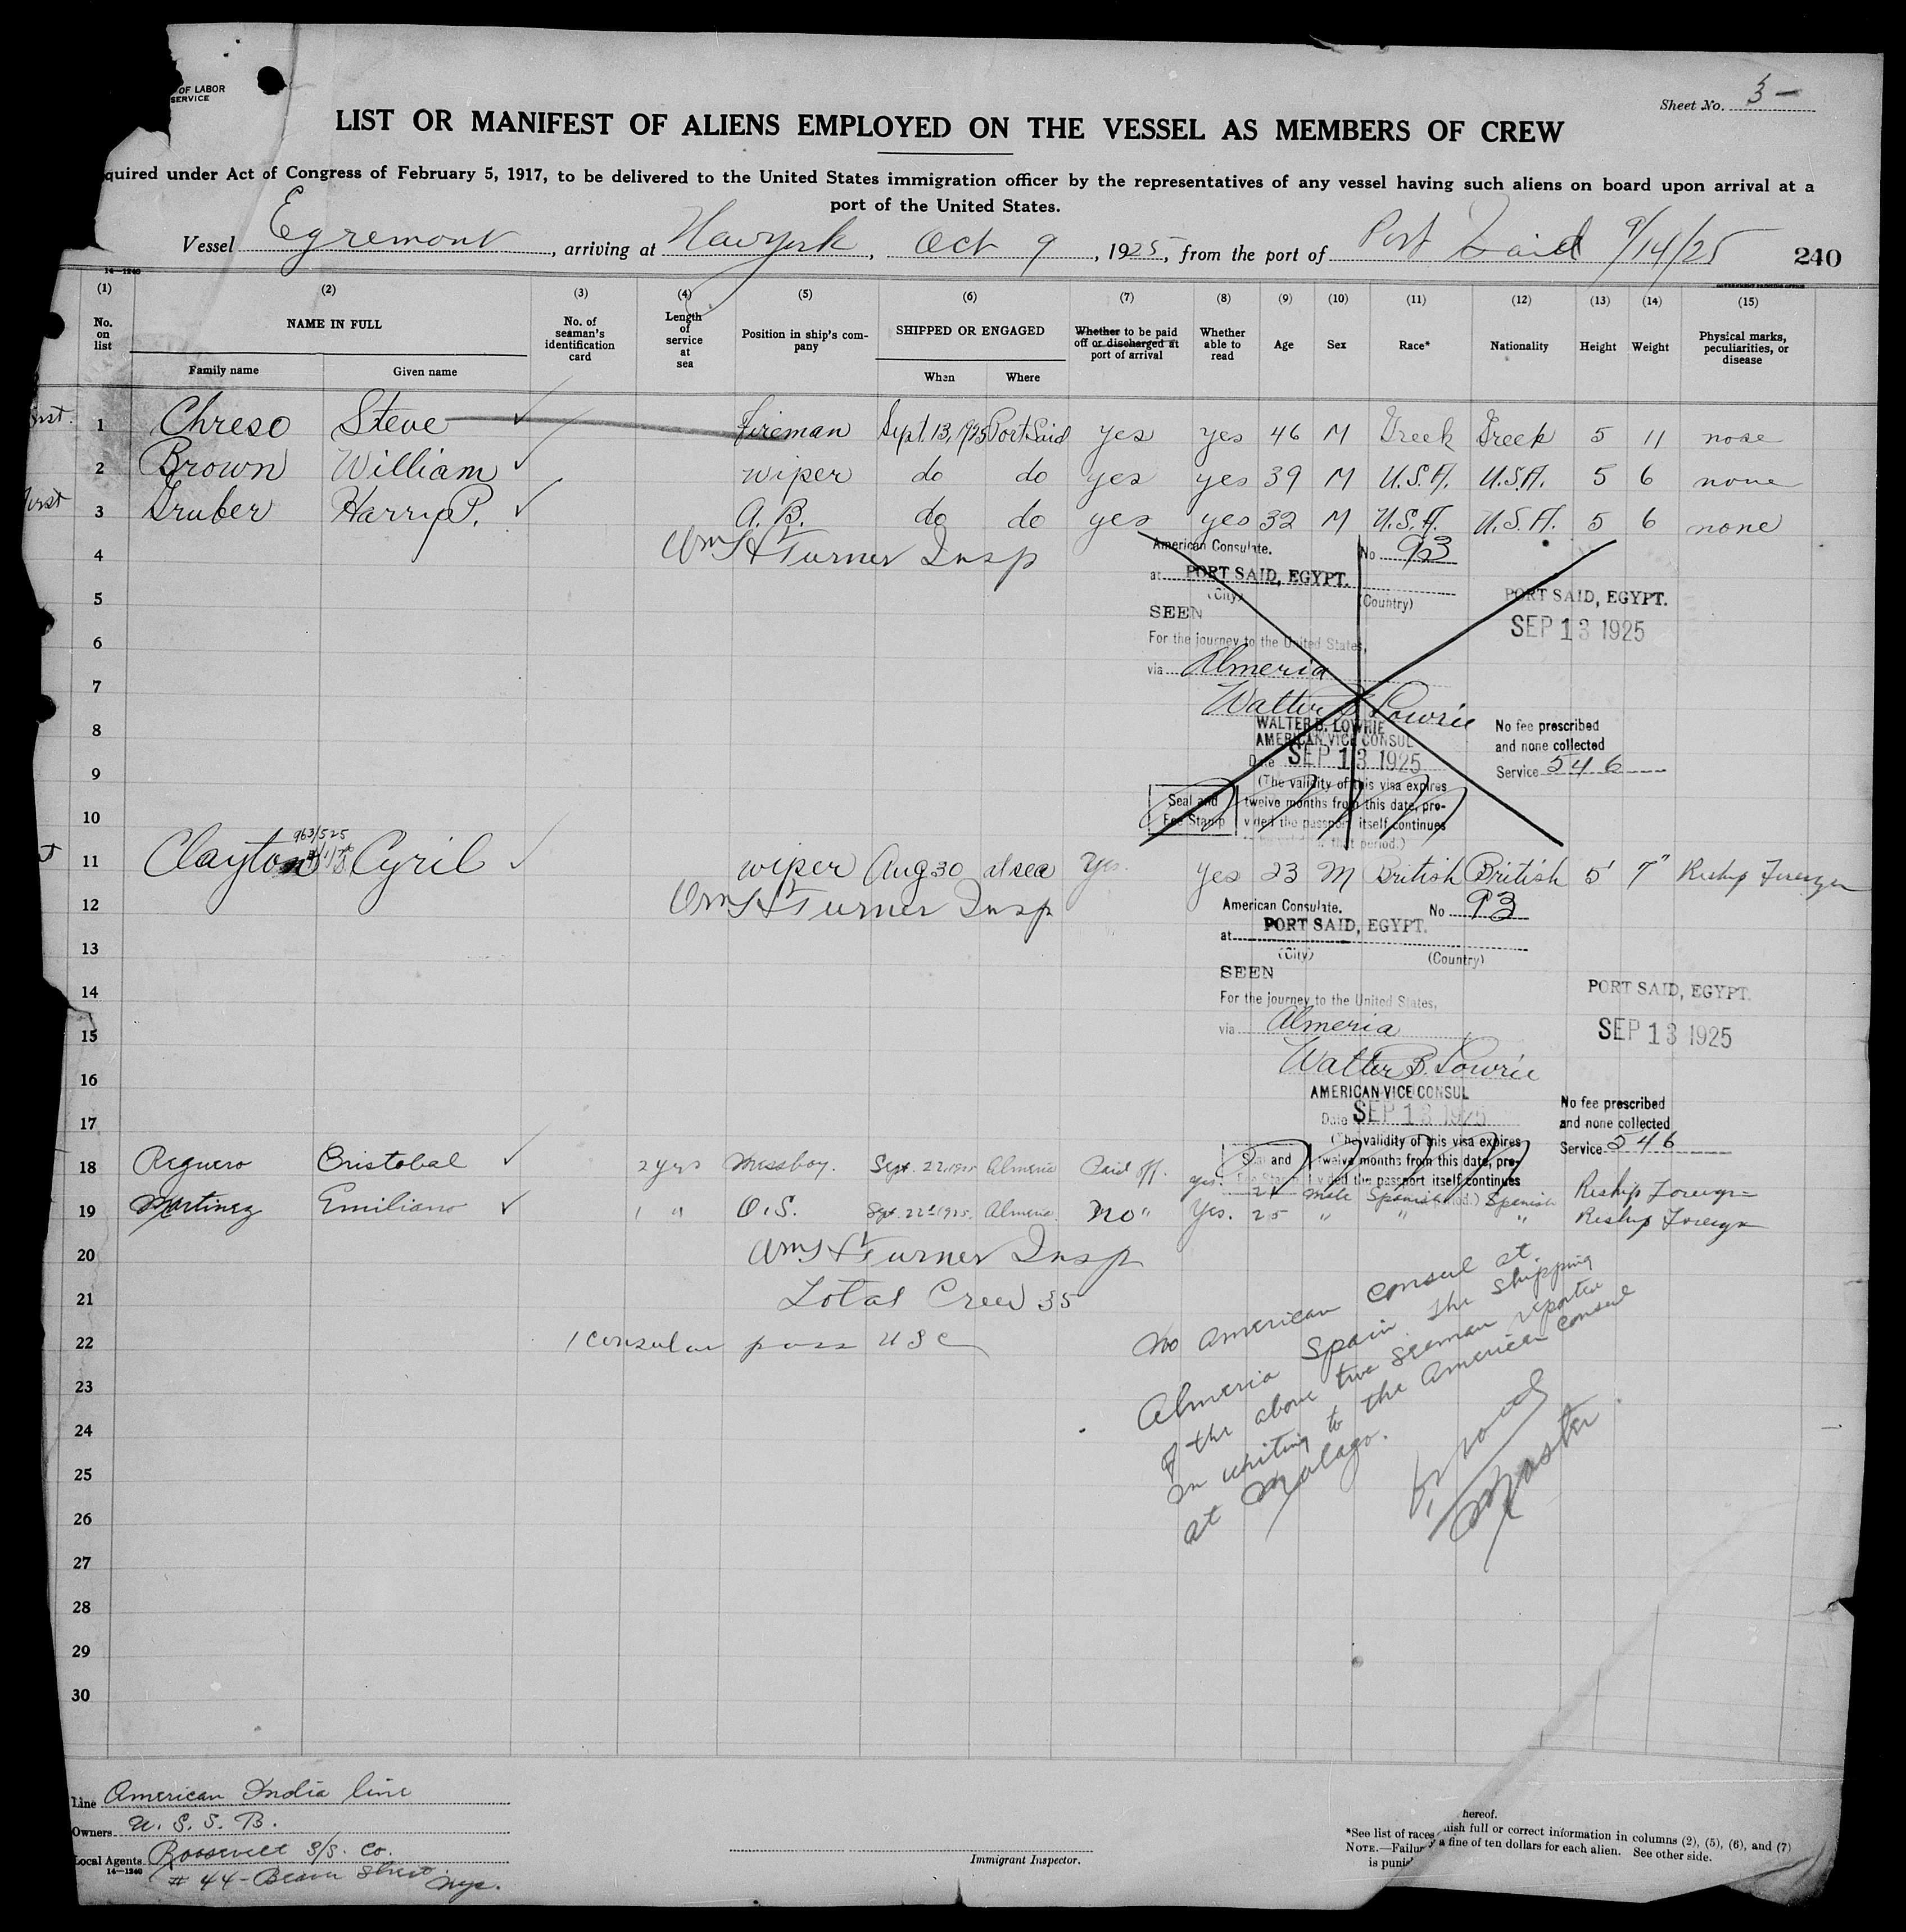 OF LABOR
SERVICE
Sheet No. 3 -
LIST OR MANIFEST OF ALIENS EMPLOYED ON THE VESSEL AS MEMBERS OF CREW
quired under Act of Congress of February 5, 1917, to be delivered to the United States immigration officer by the representatives of any vessel having such aliens on board upon arrival at a
port of the United States.
Vessel Egremont, arriving at New York, Oct 9, 1925, from the port of Port Said 9/14/25 240
14—1240
GOVERNMENT PRINTING OFFICE
(1) (2) (3) (4) (5) (6) (7) (8) (9) (10) (11) (12) (13) (14) (15)
No. on list NAME IN FULL No. of seaman's identification card Length of service at sea Position in ship's company SHIPPED OR ENGAGED Whether to be paid off or discharged at port of arrival Whether able to read Age Sex Race* Nationality Height Weight Physical marks, peculiarities, or disease
Family name Given name When Where
1 Chreso Steve fireman Sept. 13, 1925 Port Said yes yes 46 M Greek Greek 5 11 none
2 Brown William wiper do do yes yes 39 M U.S.A. U.S.A. 5 6 none
3 Gruber Harry P. A.B. do do yes yes 32 M U.S.A. U.S.A. 5 6 none
4 Wm H Turner Insp
American Consulate. No 93
at PORT SAID, EGYPT.
(City) (Country)
5 PORT SAID, EGYPT.
SEEN
SEP 13 1925
6 For the journey to the United States,
via Almeria
7 Walter B Lowrie
WALTER B. LOWRIE
8 AMERICAN VICE CONSUL
No fee prescribed
and none collected
Date SEP 13 1925
Service 546
9 (The validity of this visa expires
Seal and twelve months from this date, pro-
10 Fee Stamp vided the passport itself continues
that period.)
963/525
11 Clayton Cyril wiper Aug 30 at sea Yes. yes 23 M British British 5' 7" Reship Foreign
12 Wm H Turner Insp
American Consulate. No 93
at PORT SAID, EGYPT.
13 (City) (Country)
SEEN
14 For the journey to the United States,
PORT SAID, EGYPT.
15 via Almeria
SEP 13 1925
16 Walter B. Lowrie
AMERICAN VICE CONSUL
No fee prescribed
17 Date SEP 13 1925
and none collected
(The validity of this visa expires
Service 546
Seal and twelve months from this date, pro-
vided the passport itself continues
18 Reguero Cristobal 2 yrs Messboy. Sept. 22, 1925 Almeria Paid off. yes. male Spanish Spanish Reship Foreign
19 Martinez Emiliano 1 " O.S. Sept. 22 1925. Almeria No " Yes. 25 " " " Reship Foreign
20 Wm H Turner Insp
21 Total Crew 35
22 1 consular pass USC
No American consul at
Almeria Spain. The shipping
23 of the above two seaman reported
24 in writing to the American consul
25 at Malaga.
Master
26
27
28
29
30
Line American India line
Owners U. S. S. B.
Local Agents Roosevelt S/S. Co.
14—1240
# 44 - Beaver Street Nyc.
Immigrant Inspector.
hereof.
*See list of races
NOTE.—Failur nish full or correct information in columns (2), (5), (6), and (7)
is punis y a fine of ten dollars for each alien. See other side.